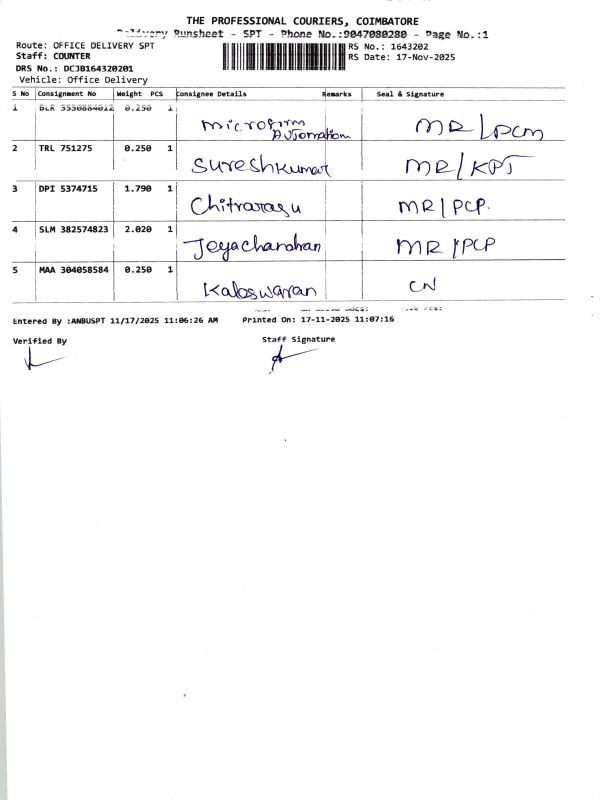 THE PROFESSIONAL COURIERS, COIMBATORE
Delivery Runsheet - SPT - Phone No.:9047080280 - Page No.:1
Route: OFFICE DELIVERY SPT
RS No.: 1643202
Staff: COUNTER
RS Date: 17-Nov-2025
DRS No.: DCJB164320201
Vehicle: Office Delivery
S No Consignment No Weight PCS Consignee Details Remarks Seal & Signature
1 BLR 0.250 1 Microfirm Automation MR/PCM
2 TRL 751275 0.250 1 Sureshkumar MR/KPT
3 DPI 5374715 1.790 1 Chitrarasu MR/PCP.
4 SLM 382574823 2.020 1 Jeyachandran MR/PCP
5 MAA 304058584 0.250 1 Kaleswaran CN
Entered By :ANBUSPT 11/17/2025 11:06:26 AM Printed On: 17-11-2025 11:07:16
Verified By Staff Signature